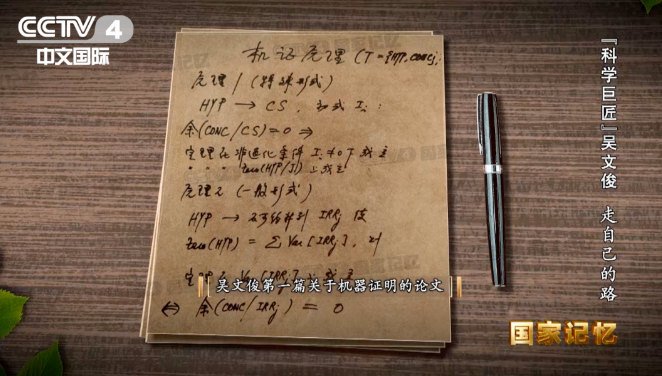 CCTV 4
中文国际
机证原理 (T={HYP, CONC},
原理1 (特殊形式)
HYP → CS, 初式 Ii:
余(CONC/CS)=0 ⇒
定理在非退化条件 Ii≠0 下成立
Zero(HYP/J) 上成立
原理2 (一般形式)
HYP → 不可约升列 IRRj 使
Zero(HYP) = ∑ Var[IRRj], 则
定理在 Var[IRRj] 上成立
⇔ 余(CONC/IRRj) = 0
吴文俊第一篇关于机器证明的论文
『科学巨匠』吴文俊 走自己的路
国家记忆